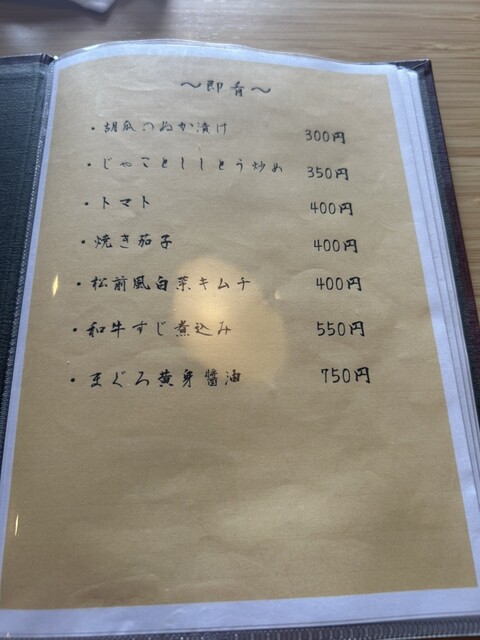 〜即肴〜
・胡瓜のぬか漬け 300円
・じゃことししとう炒め 350円
・トマト 400円
・焼き茄子 400円
・松前風白菜キムチ 400円
・和牛すじ煮込み 550円
・まぐろ黄身醬油 750円